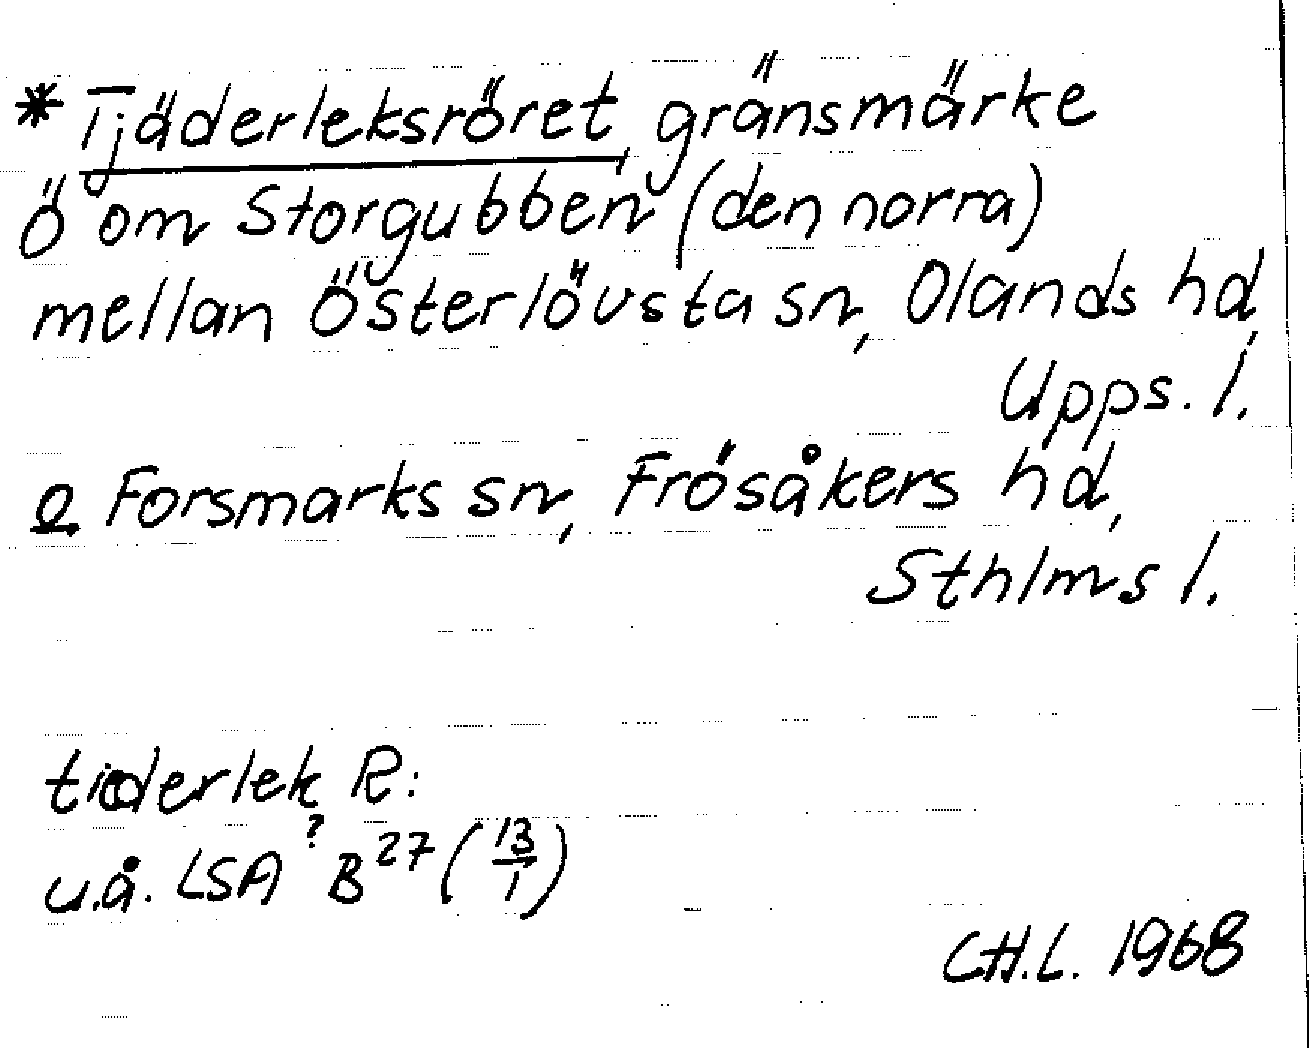 * Tjäderleksröret, gränsmärke
Ö om Storgubben (den norra)
mellan Österlövsta sn, Olands hd,
Upps. l.
o Forsmarks sn, Frösåkers hd,
Sthlms l.
tiederlek R:
?
u.å. LSA B 27 (13/1)
C.H.L. 1968